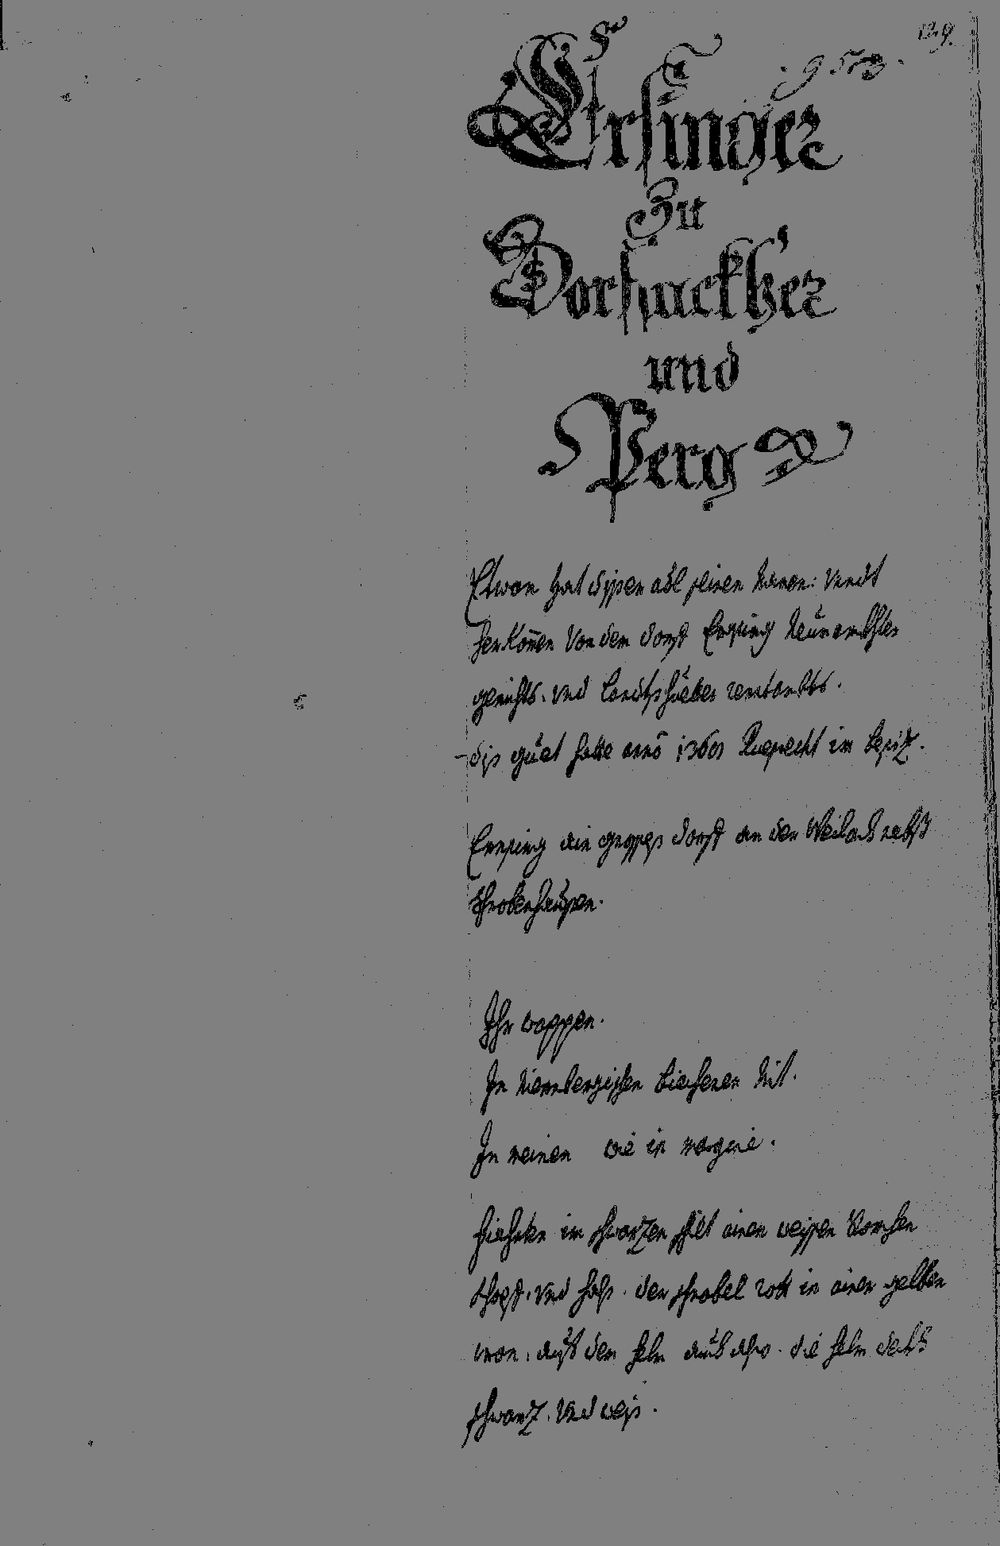 129.
Ersinger
Zu
Dorfackher
und
Perg
Etwon hat disser adl seinen namen: vnndt
herkomen von dem dorff Ersing Neunmarkhter
gerichts. vnd Landtshueter rentambts.
dis guet hatte anno 1360 Rueprecht im besiz.
Ersing ein grosses dorff an der Weilach nebst
Schrobenhausen.
Ihr wappen.
In Niernbergischen biecheren nit.
In meinen wie in margine.
fiehrten im schwarzen schilt einen weissen Storchen
khopf. vnd hals. der schnabel rott in einer gelben
cron. auf den helm auch also. die helm dekh
schwarz. vnd weis.